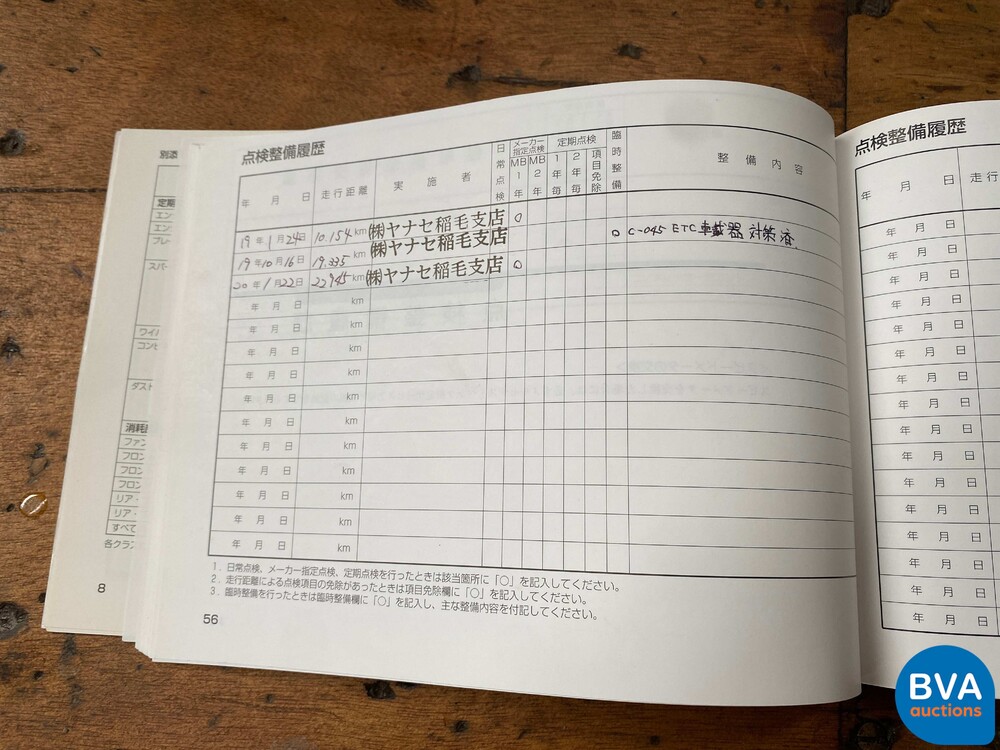 点検整備履歴
年 月 日 走行距離 実施者 日常点検 メーカー指定点検 MB1年 MB2年 定期点検 1年毎 2年毎 項目免除 臨時整備 整備内容
19年1月24日 10.154km ㈱ヤナセ稲毛支店 ○
19年10月16日 19.335km ㈱ヤナセ稲毛支店 ○ C-045 ETC車載器 対策済
20年1月22日 22945km ㈱ヤナセ稲毛支店 ○
年 月 日 km
年 月 日 km
年 月 日 km
年 月 日 km
年 月 日 km
年 月 日 km
年 月 日 km
年 月 日 km
年 月 日 km
年 月 日 km
年 月 日 km
1. 日常点検，メーカー指定点検、定期点検を行ったときは該当箇所に「○」を記入してください。
2. 走行距離による点検項目の免除があったときは項目免除欄に「○」を記入してください。
3. 臨時整備を行ったときは臨時整備欄に「○」を記入し、主な整備内容を付記してください。
56
別添
定期
エン
エン
ブレー
スパー
ワイパ
コンビ
ダスト
消耗
ファン
フロン
フロン
フロン
リア・
リア・
すべて
各クラン
8
点検整備履歴
年 月 日 走行
年 月 日
年 月 日
年 月 日
年 月 日
年 月 日
年 月 日
年 月 日
年 月 日
年 月 日
年 月 日
年 月 日
年 月 日
年 月 日
年 月 日
年 月 日
年 月 日
年 月 日
BVA
auctions